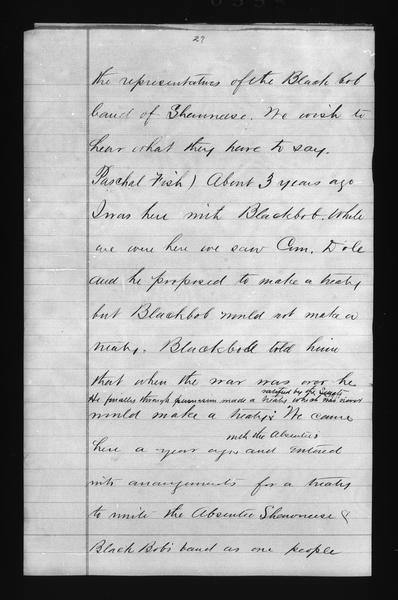 27
the representatives of the Black bob
band of Shawnese. We wish to
hear what they have to say.
Paschal Fish) About 3 years ago
I was here with Blackbob. While
we were here we saw Com. Dole
and he proposed to make a treaty
but Blackbob would not make a
treaty. Blackbob told him
that when the war was over he
ratified by the Senate
He finally through persuasion made a treaty which was never
would make a treaty; We came
with the Absentees
here a year ago and entered
into arrangements for a treaty
to unite the Absentee Shawnese &
Black Bob's band as one people